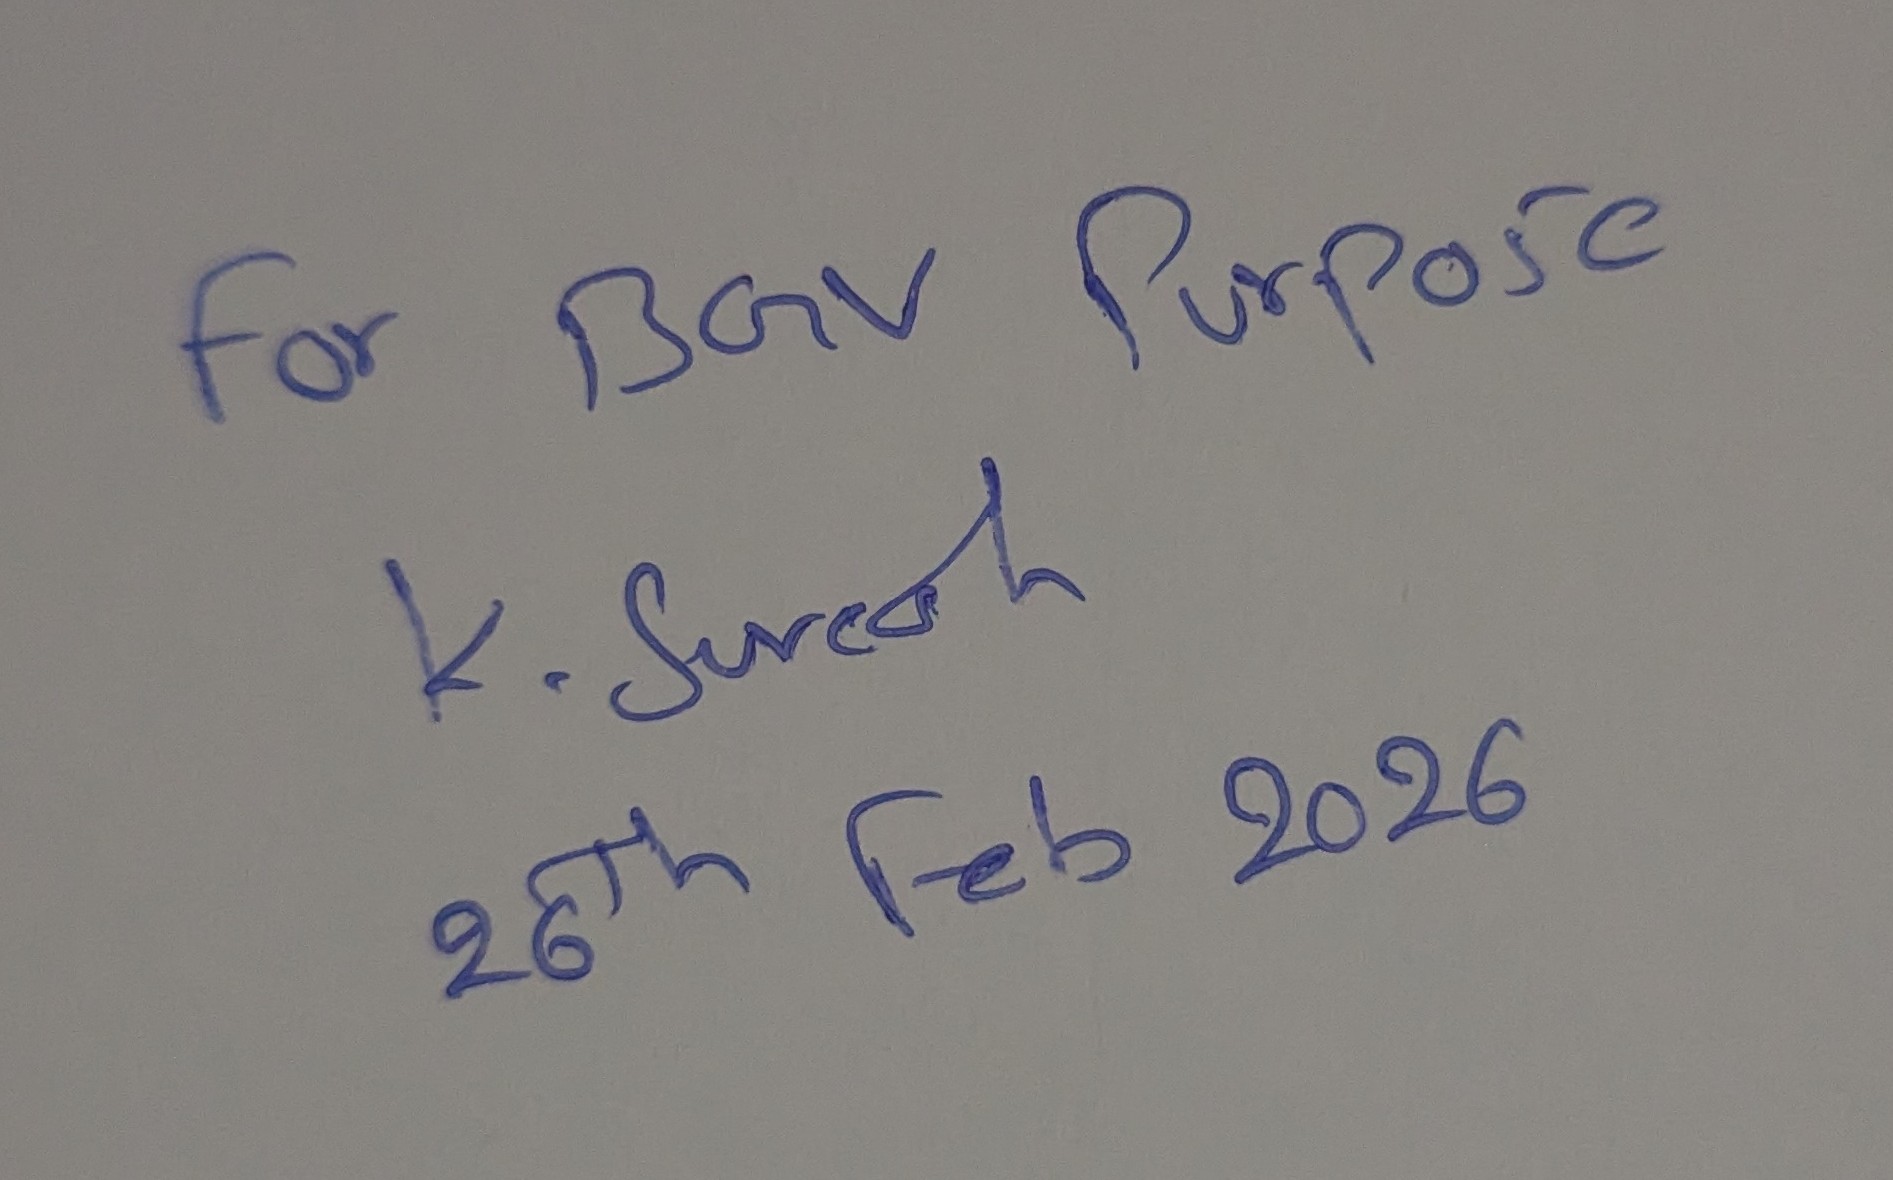 For BGV Purpose
K. Suresh
26Th Feb 2026